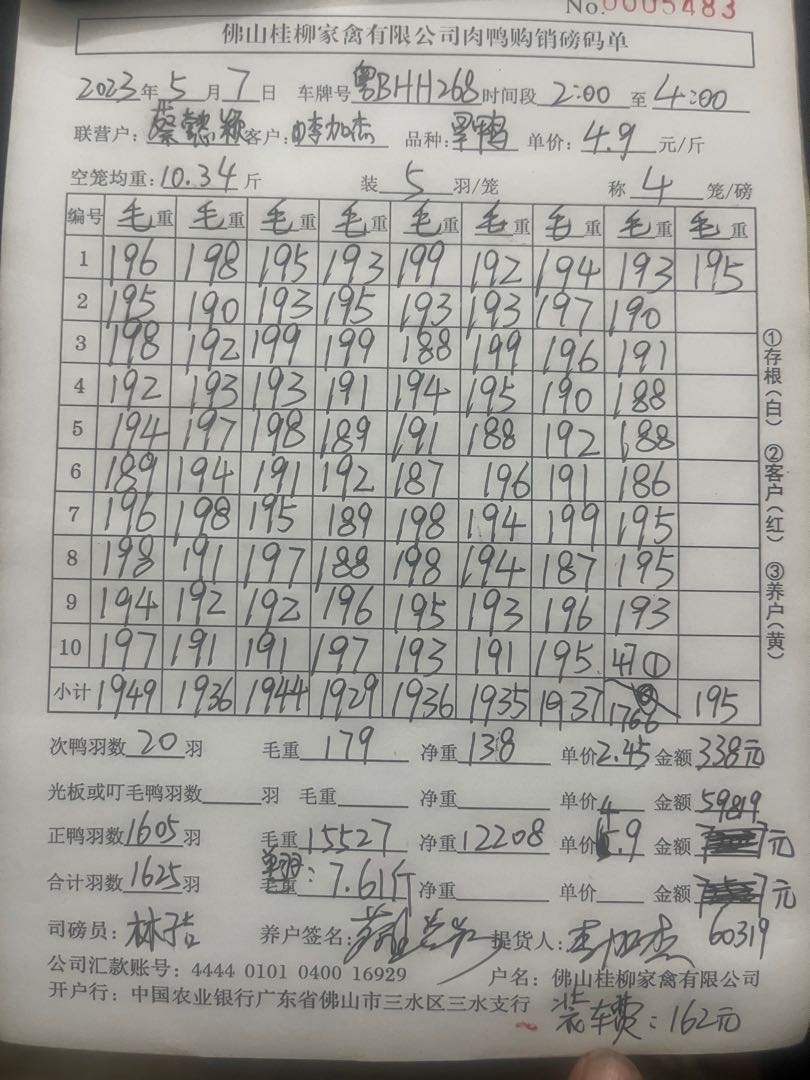 No.0005483
佛山桂柳家禽有限公司肉鸭购销磅码单
2023年5月7日 车牌号粤BHH268时间段2:00至4:00
联营户:蔡懿颖客户:李加杰 品种:旱鸭 单价:4.9元/斤
空笼均重:10.34斤 装5羽/笼 称4笼/磅
编号 毛重 毛重 毛重 毛重 毛重 毛重 毛重 毛重 毛重
1 196 198 195 193 199 192 194 193 195
2 195 190 193 195 193 193 197 190
3 198 192 199 199 188 199 196 191
4 192 193 193 191 194 195 190 188
5 194 197 198 189 191 188 192 188
6 189 194 191 192 187 196 191 186
7 196 198 195 189 198 194 199 195
8 198 191 197 188 198 194 187 195
9 194 192 192 196 195 193 196 193
10 197 191 191 197 193 191 195 47①
小计 1949 1936 1944 1929 1936 1935 1937 1766 195
次鸭羽数20羽 毛重179 净重138 单价2.45 金额338元
光板或叮毛鸭羽数 羽 毛重 净重 单价 金额59819
正鸭羽数1605羽 毛重15527 净重12208 单价4.9 金额 元
合计羽数1625羽 毛重单羽:7.61斤 净重 单价 金额 元
司磅员:林 养户签名: 提货人:李加杰 60319
公司汇款账号:4444 0101 0400 16929 户名:佛山桂柳家禽有限公司
开户行:中国农业银行广东省佛山市三水区三水支行
装车费:162元
①存根(白) ②客户(红) ③养户(黄)